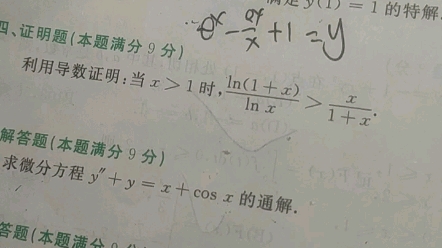 满足y(1) = 1 的特解.
e^x - 2y/x + 1 = y
四、证明题(本题满分 9 分)
利用导数证明:当 x > 1 时, ln(1 + x)/ln x > x/(1 + x).
解答题(本题满分 9 分)
求微分方程 y″ + y = x + cos x 的通解.
答题(本题满分 9 分)